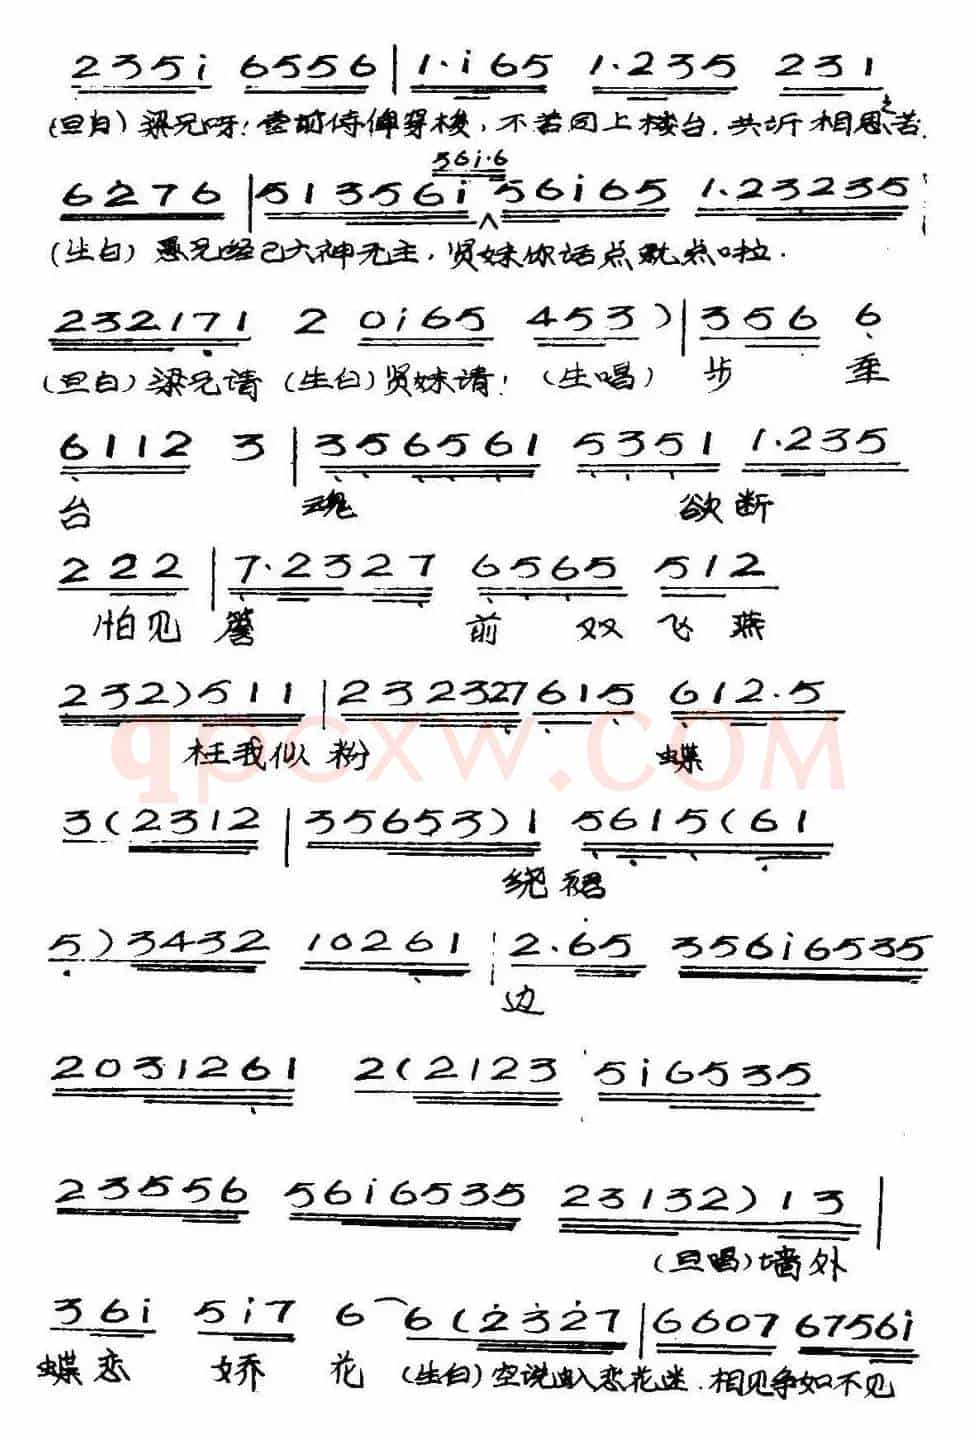 2 3 5 i 6 5 5 6 | 1 . i 6 5 1 . 2 3 5 2 3 1
(旦白) 梁兄呀! 堂前侍俾穿梭, 不若同上楼台, 共诉相思之苦.
5 6 i . 6
6 2 7 6 | 5 1 3 5 6 i ^ 5 6 i 6 5 1 . 2 3 2 3 5
(生白) 愚兄经已六神无主, 贤妹你话点就点啦.
2 3 2 1 7 1 2 0 i 6 5 4 5 3 ) | 3 5 6 6
(旦白) 梁兄请 (生白) 贤妹请! (生唱) 步 垩
6 1 1 2 3 | 3 5 6 5 6 1 5 3 5 1 1 . 2 3 5
台 魂 欲断
2 2 2 | 7 . 2 3 2 7 6 5 6 5 5 1 2
怕见 簷 前 双 飞 燕
2 3 2 ) 5 1 1 | 2 3 2 3 2 7 6 1 5 6 1 2 . 5
枉我似 粉 蝶
qpcxw.com
3 ( 2 3 1 2 | 3 5 6 5 3 ) 1 5 6 1 5 ( 6 1
绕 裙
5 ) 3 4 3 2 1 0 2 6 1 2 . 6 5 3 5 6 i 6 5 3 5
边
2 0 3 1 2 6 1 2 ( 2 1 2 3 5 i 6 5 3 5
2 3 5 5 6 5 6 i 6 5 3 5 2 3 1 3 2 ) 1 3 |
(旦唱) 墙外
3 6 i 5 i 7 6 6 ( 2 3 2 7 | 6 6 0 7 6 7 5 6 i
蝶恋 娇 花 (生白) 空说恋花迷. 相见争如不见